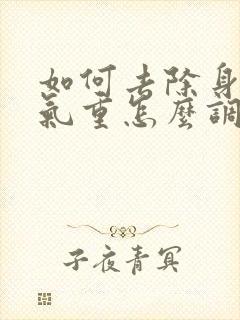 如何去除身
氣重怎麼調
子夜青冥